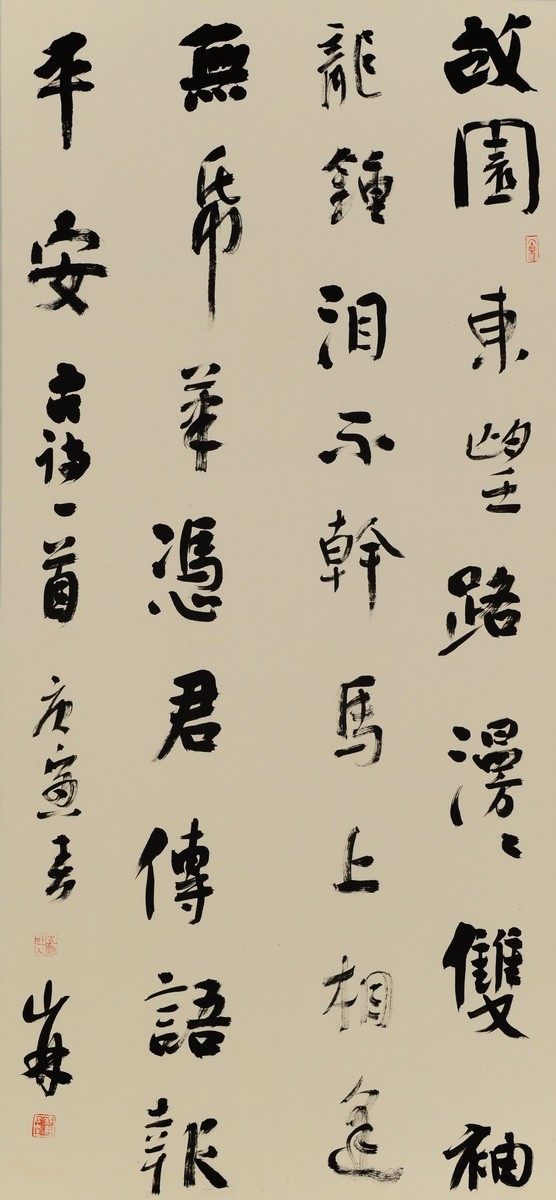 故園東望路漫〻雙袖
龍鍾泪不幹馬上相逢
無帋筆憑君傳語報
平安古詩一首庚寅春